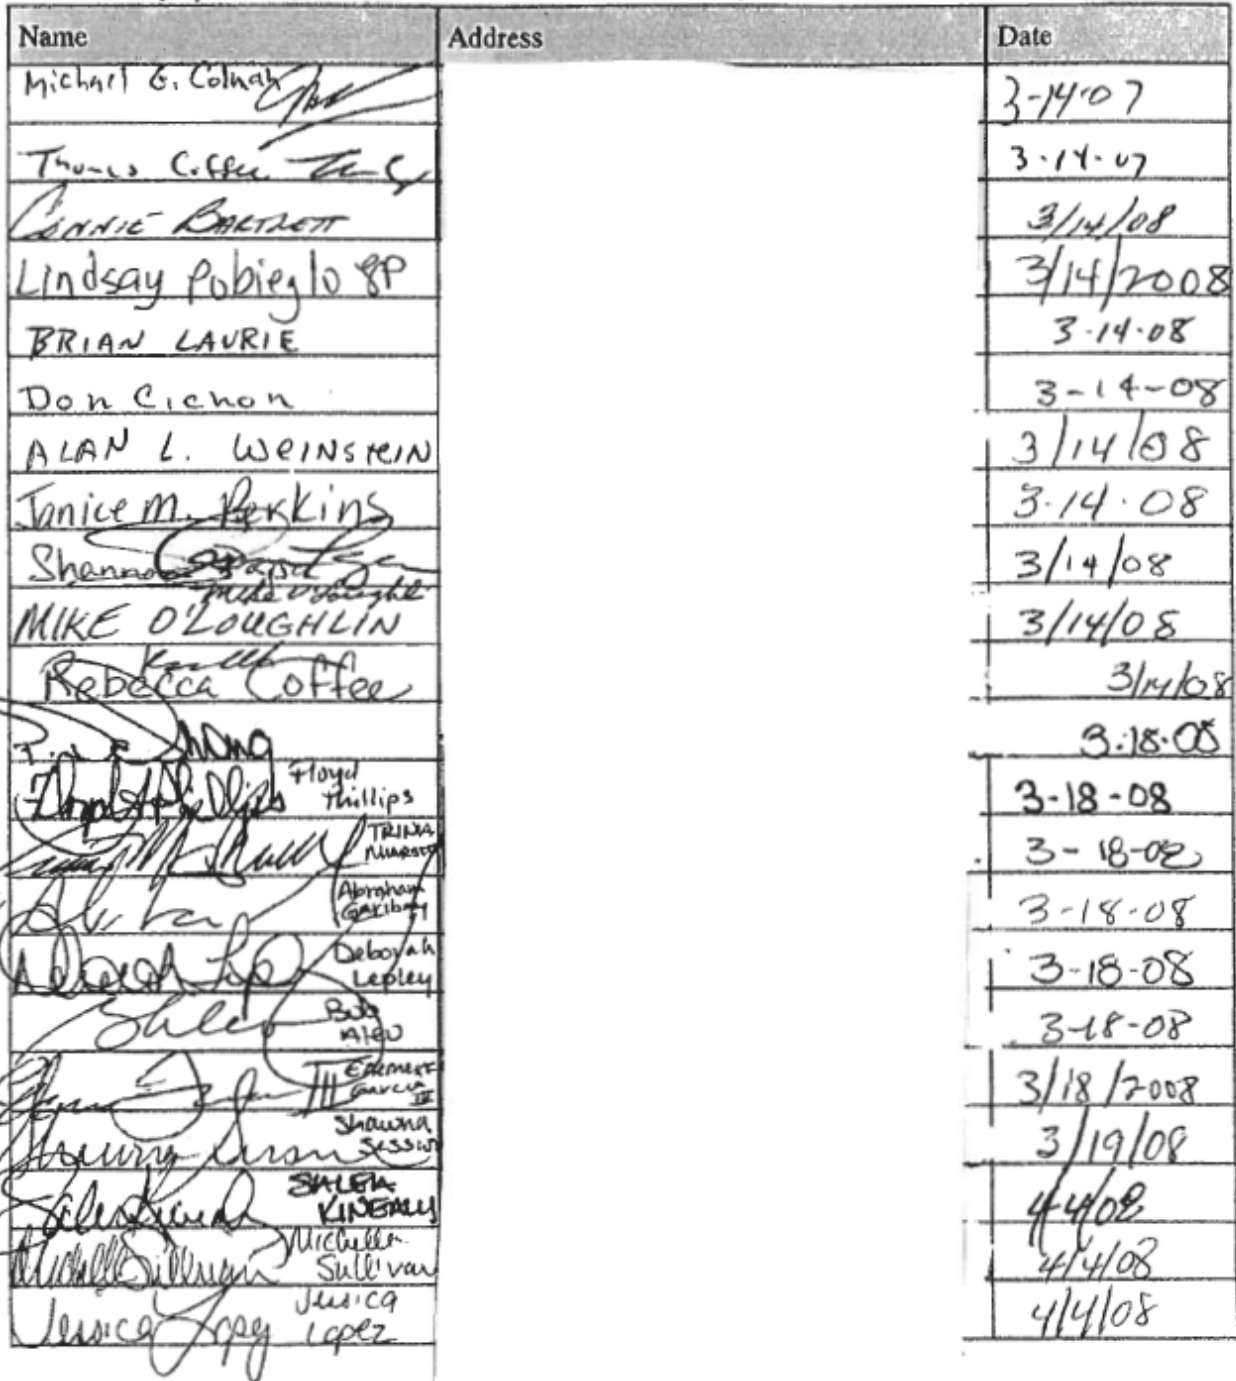 Name Address Date
Michael E. Colman 3-14-07
Thomas Coffee 3-14-07
CONNIE BARTLETT 3/14/08
Lindsay Pobieglo 3/14/2008
BRIAN LAURIE 3-14-08
Don Cichon 3-14-08
ALAN L. WEINSTEIN 3/14/08
Janice M. Perkins 3-14-08
Shannon 3/14/08
Mike O'Loughlin
MIKE O'LOUGHLIN 3/14/08
Rebecca Coffee 3/14/08
3-18-08
Floyd Phillips Floyd Phillips 3-18-08
TRINA 3-18-08
Abraham Garibay 3-18-08
Deborah Lepley Deborah Lepley 3-18-08
Bob 3-18-08
III Garcia III 3/18/2008
Shawna Shawna 3/19/08
SALEIA KINEALY 4/4/08
Michelle Sullivan Michelle Sullivan 4/4/08
Jessica Lopez Jessica Lopez 4/4/08